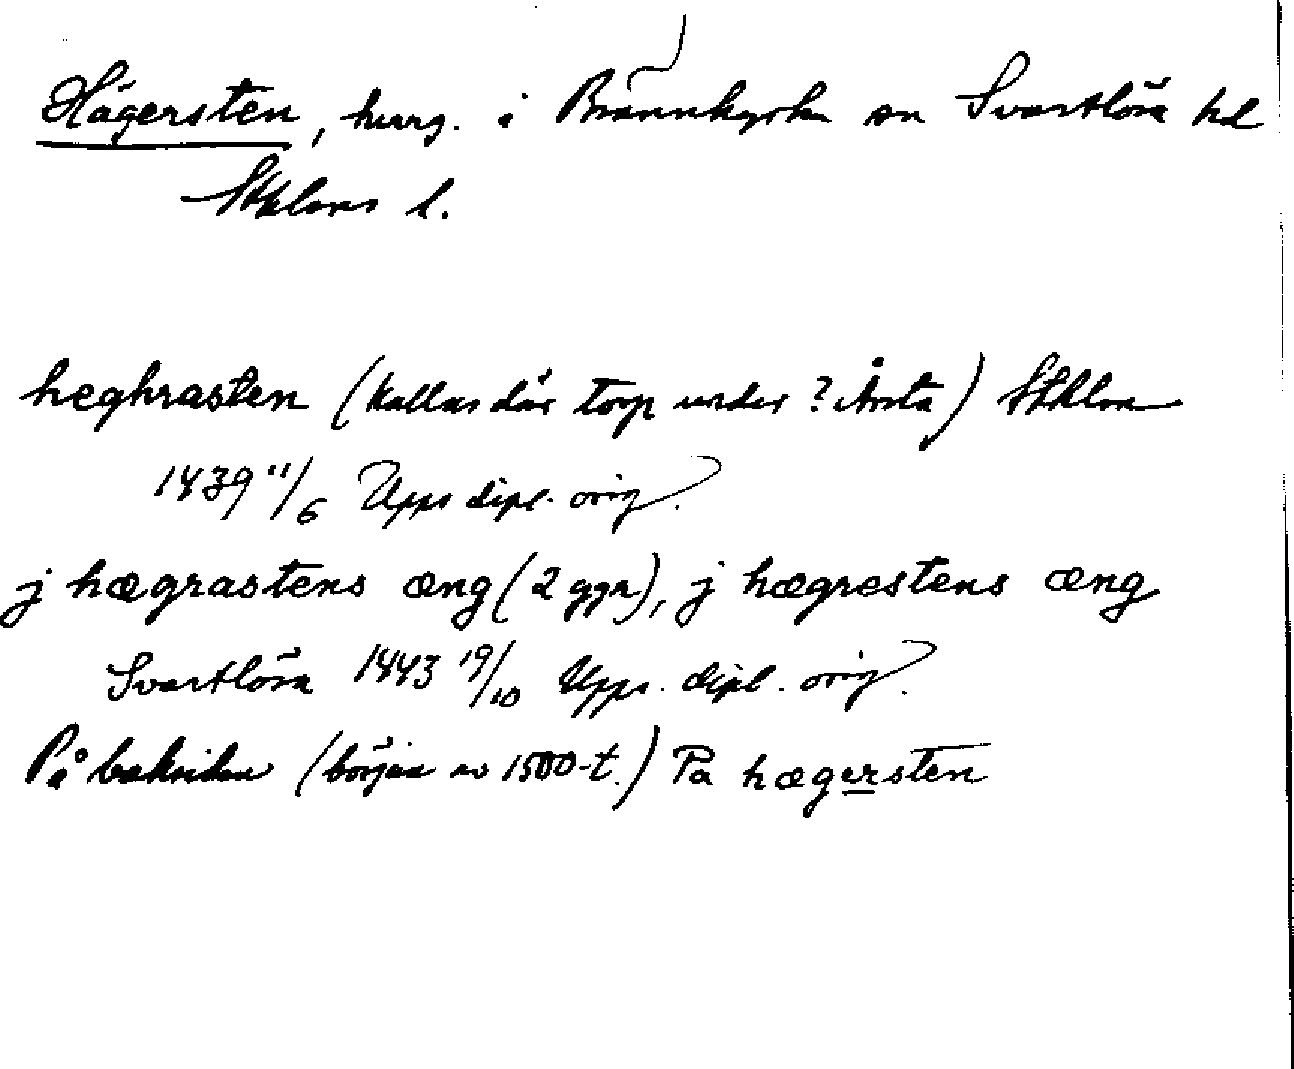 Hägersten, herrg. i Brännkyrka sn Svartlösa hd
Sthlms l.
heghrasten (kallas där torp under ? Årsta) Sthlm
1439 11/6 Upps dipl. orig.
j hægrastens æng (2 ggr), j hægrestens æng
Svartlösa 1443 19/10 Upps. dipl. orig.
På baksidan (början av 1500-t.) Pa hægersten